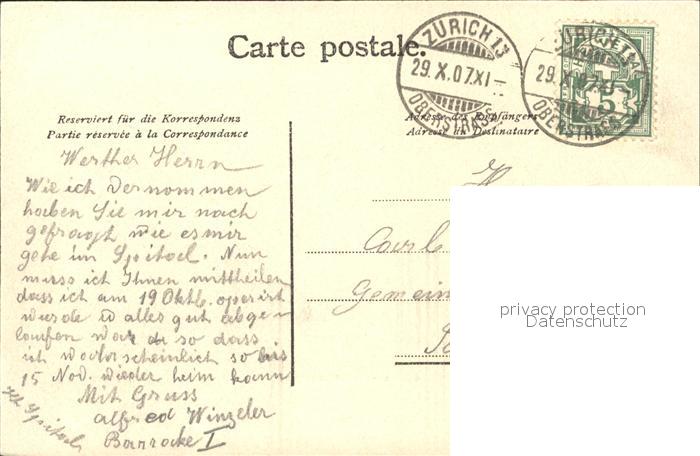 Carte postale.
ZÜRICH 13
29.X.07.XI-
OBERSTRASS
ZÜRICH 13
29.X.07.XI-
OBERSTRASS
5
Reserviert für die Korrespondenz
Partie réservée à la Correspondance
Adresse des Empfängers
Adresse du Destinataire
Werther Herrn
Wie ich Vernommen
haben Sie mir nach
gefragt wie es mir
gehe im Spital. Nun
muss ich Ihnen mittheilen
dass ich am 19 Oktb. operirt
wurde alles gut abge
laufen war so dass
ich warscheinlich so bis
15 Nov. wieder heim kann
Mit Gruss
Alfred Winzeler
Barracke I
Spital
H
Carl
Gemein
privacy protection
Datenschutz